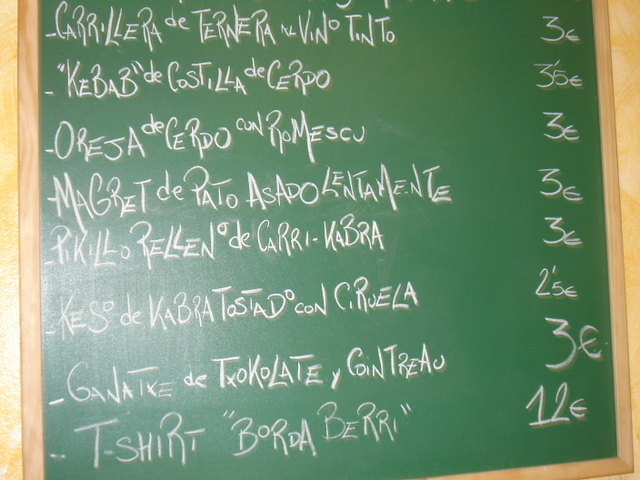 -CARRILLERA de TERNERA AL VINO TINTO 3€
-"KEBAB" de COSTILLA de CERDO 3'5€
-OREJA de CERDO CON ROMESCU 3€
-MAGRET de PATO ASADO LENTAMENTE 3€
-PIKILLO RELLENO de CARRI-KABRA 3€
-KESO de KABRA TOSTADO CON CIRUELA 2'5€
-GANATXE de TXOKOLATE y COINTREAU 3€
- T-SHIRT "BORDA BERRI" 12€